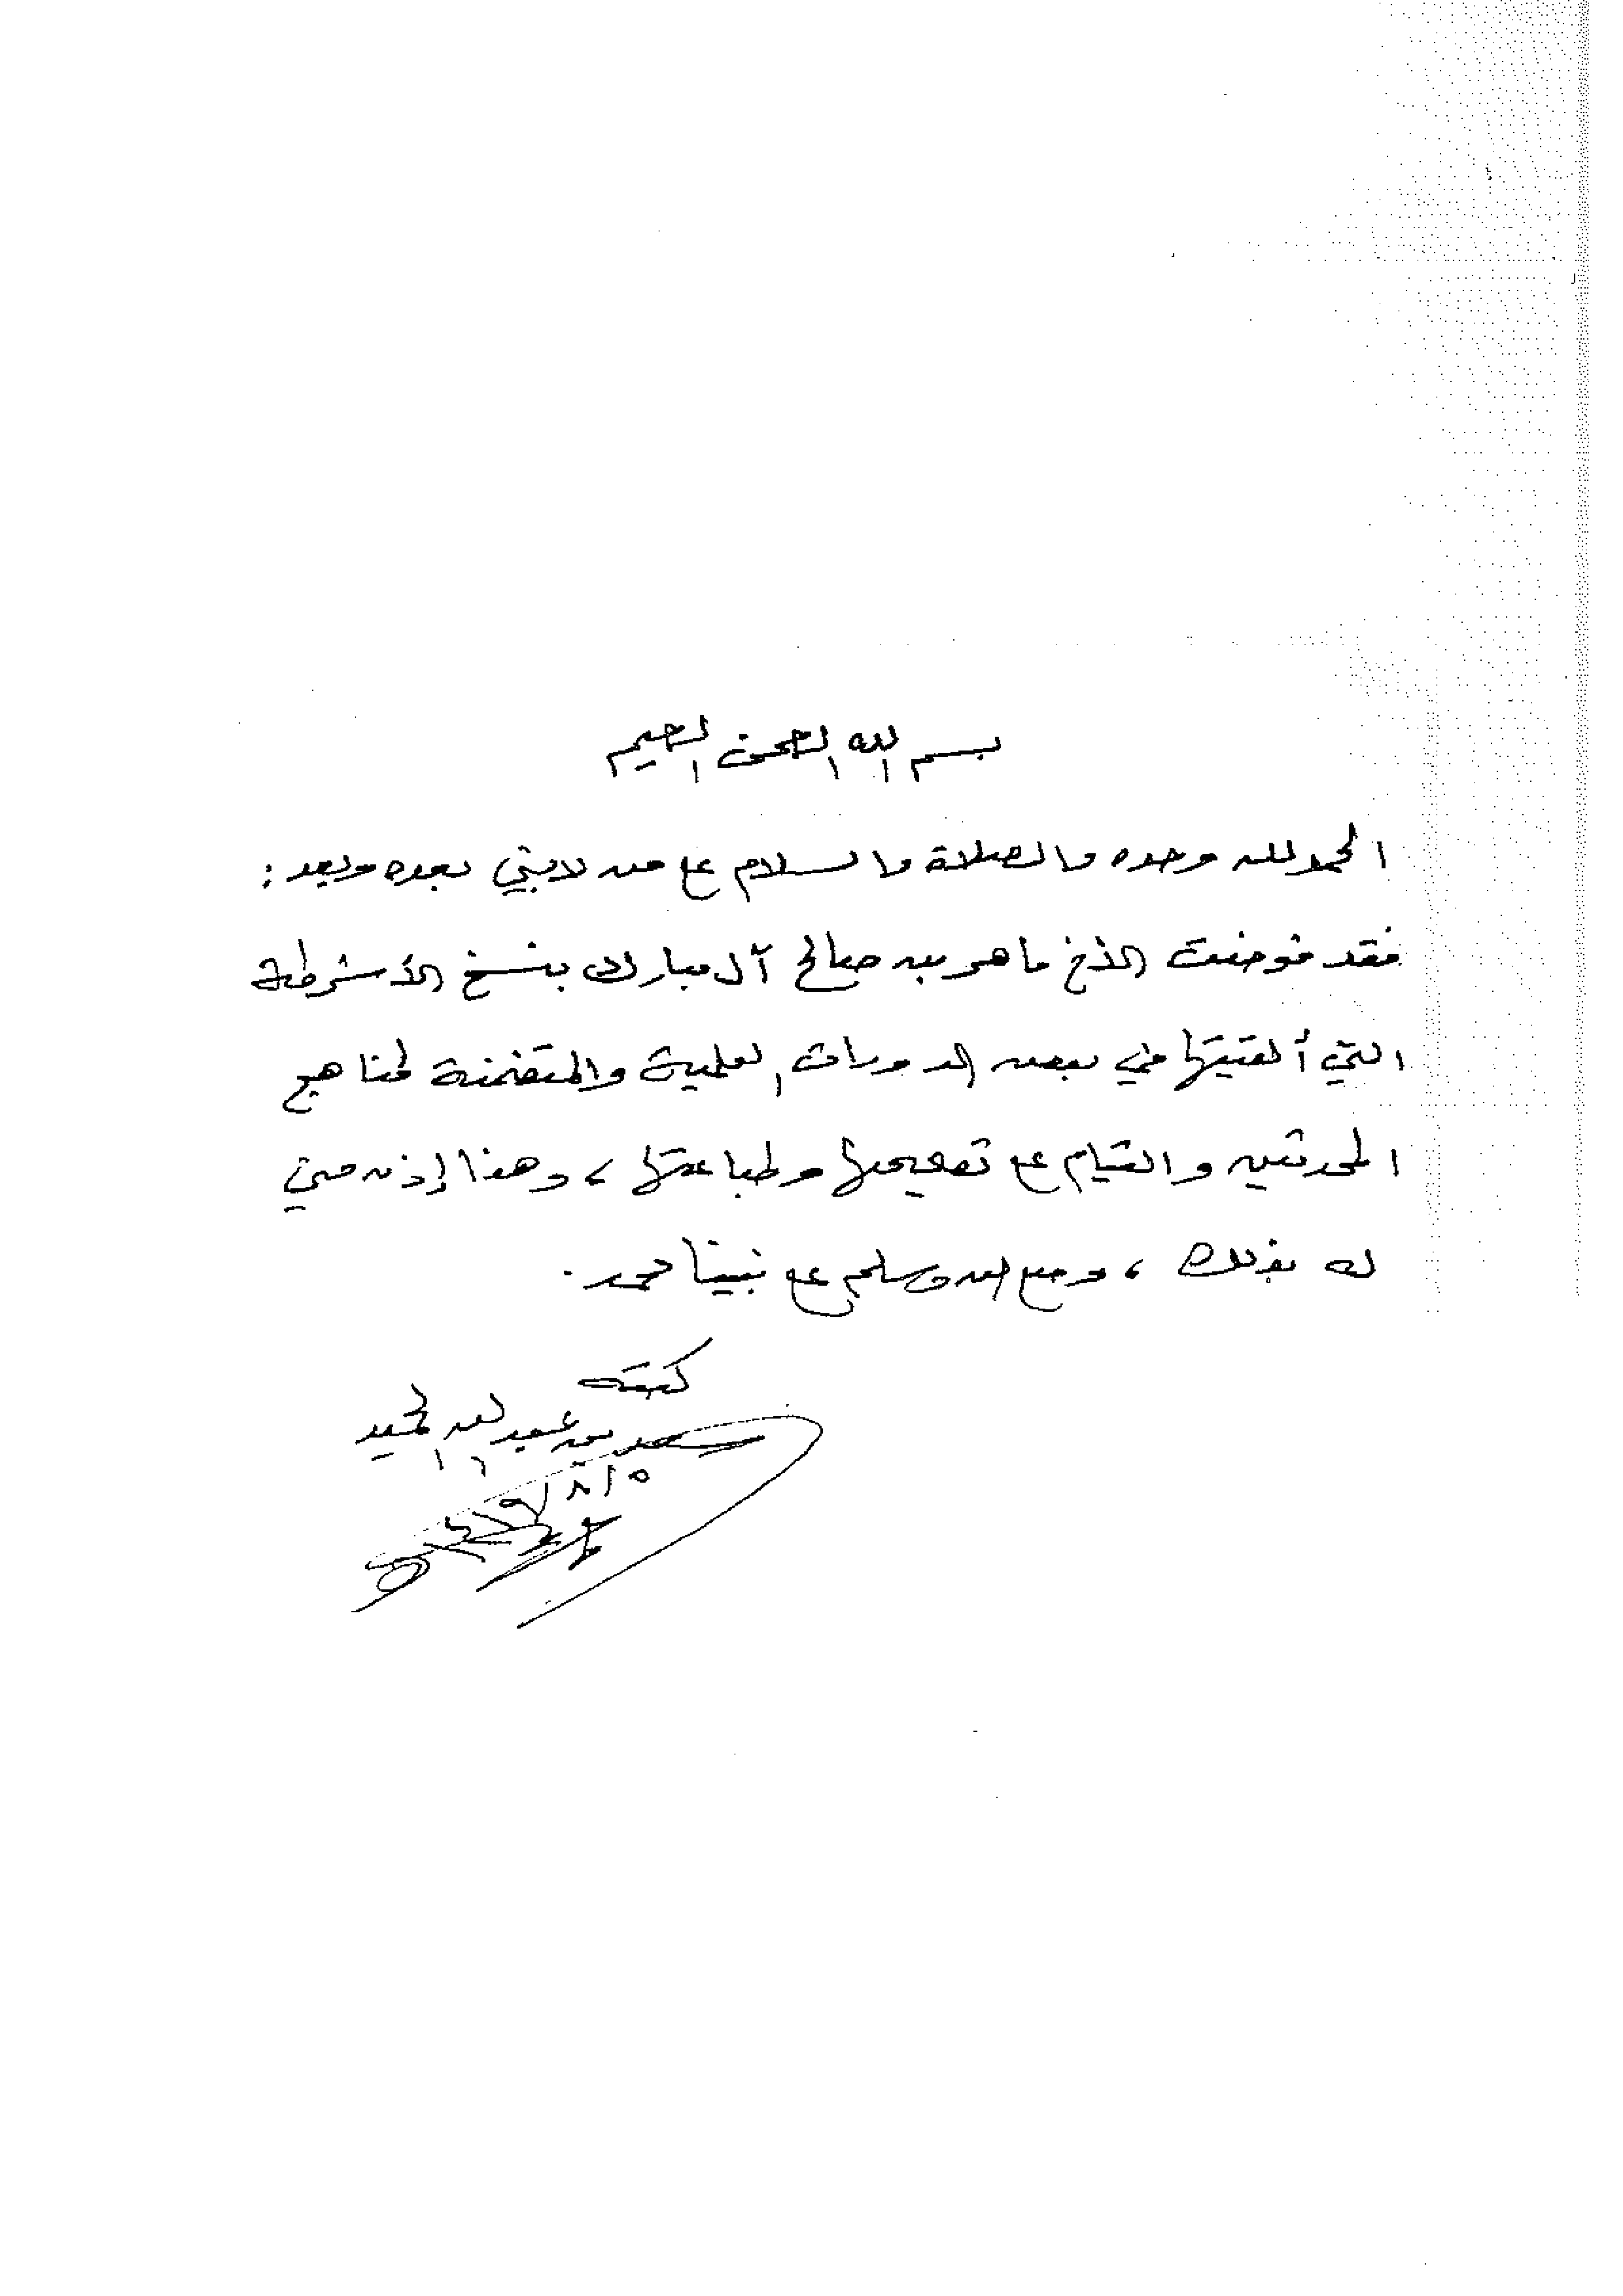 بسم الله الرحمن الرحيم
الحمد لله وحده والصلاة والسلام على من لا نبي بعده وبعد :
فقد فوضت الأخ ماهر بن صالح آل مبارك بنسخ الأشرطة
التي ألقيتها في بعض الدورات العلمية والمتضمنة لمناهج
المحدثين والقيام على تصحيحها وطباعتها ، وهذا إذن مني
له بذلك ، وصلى الله وسلم على نبينا محمد .
كتبه
سعد بن عبد الله الحميد